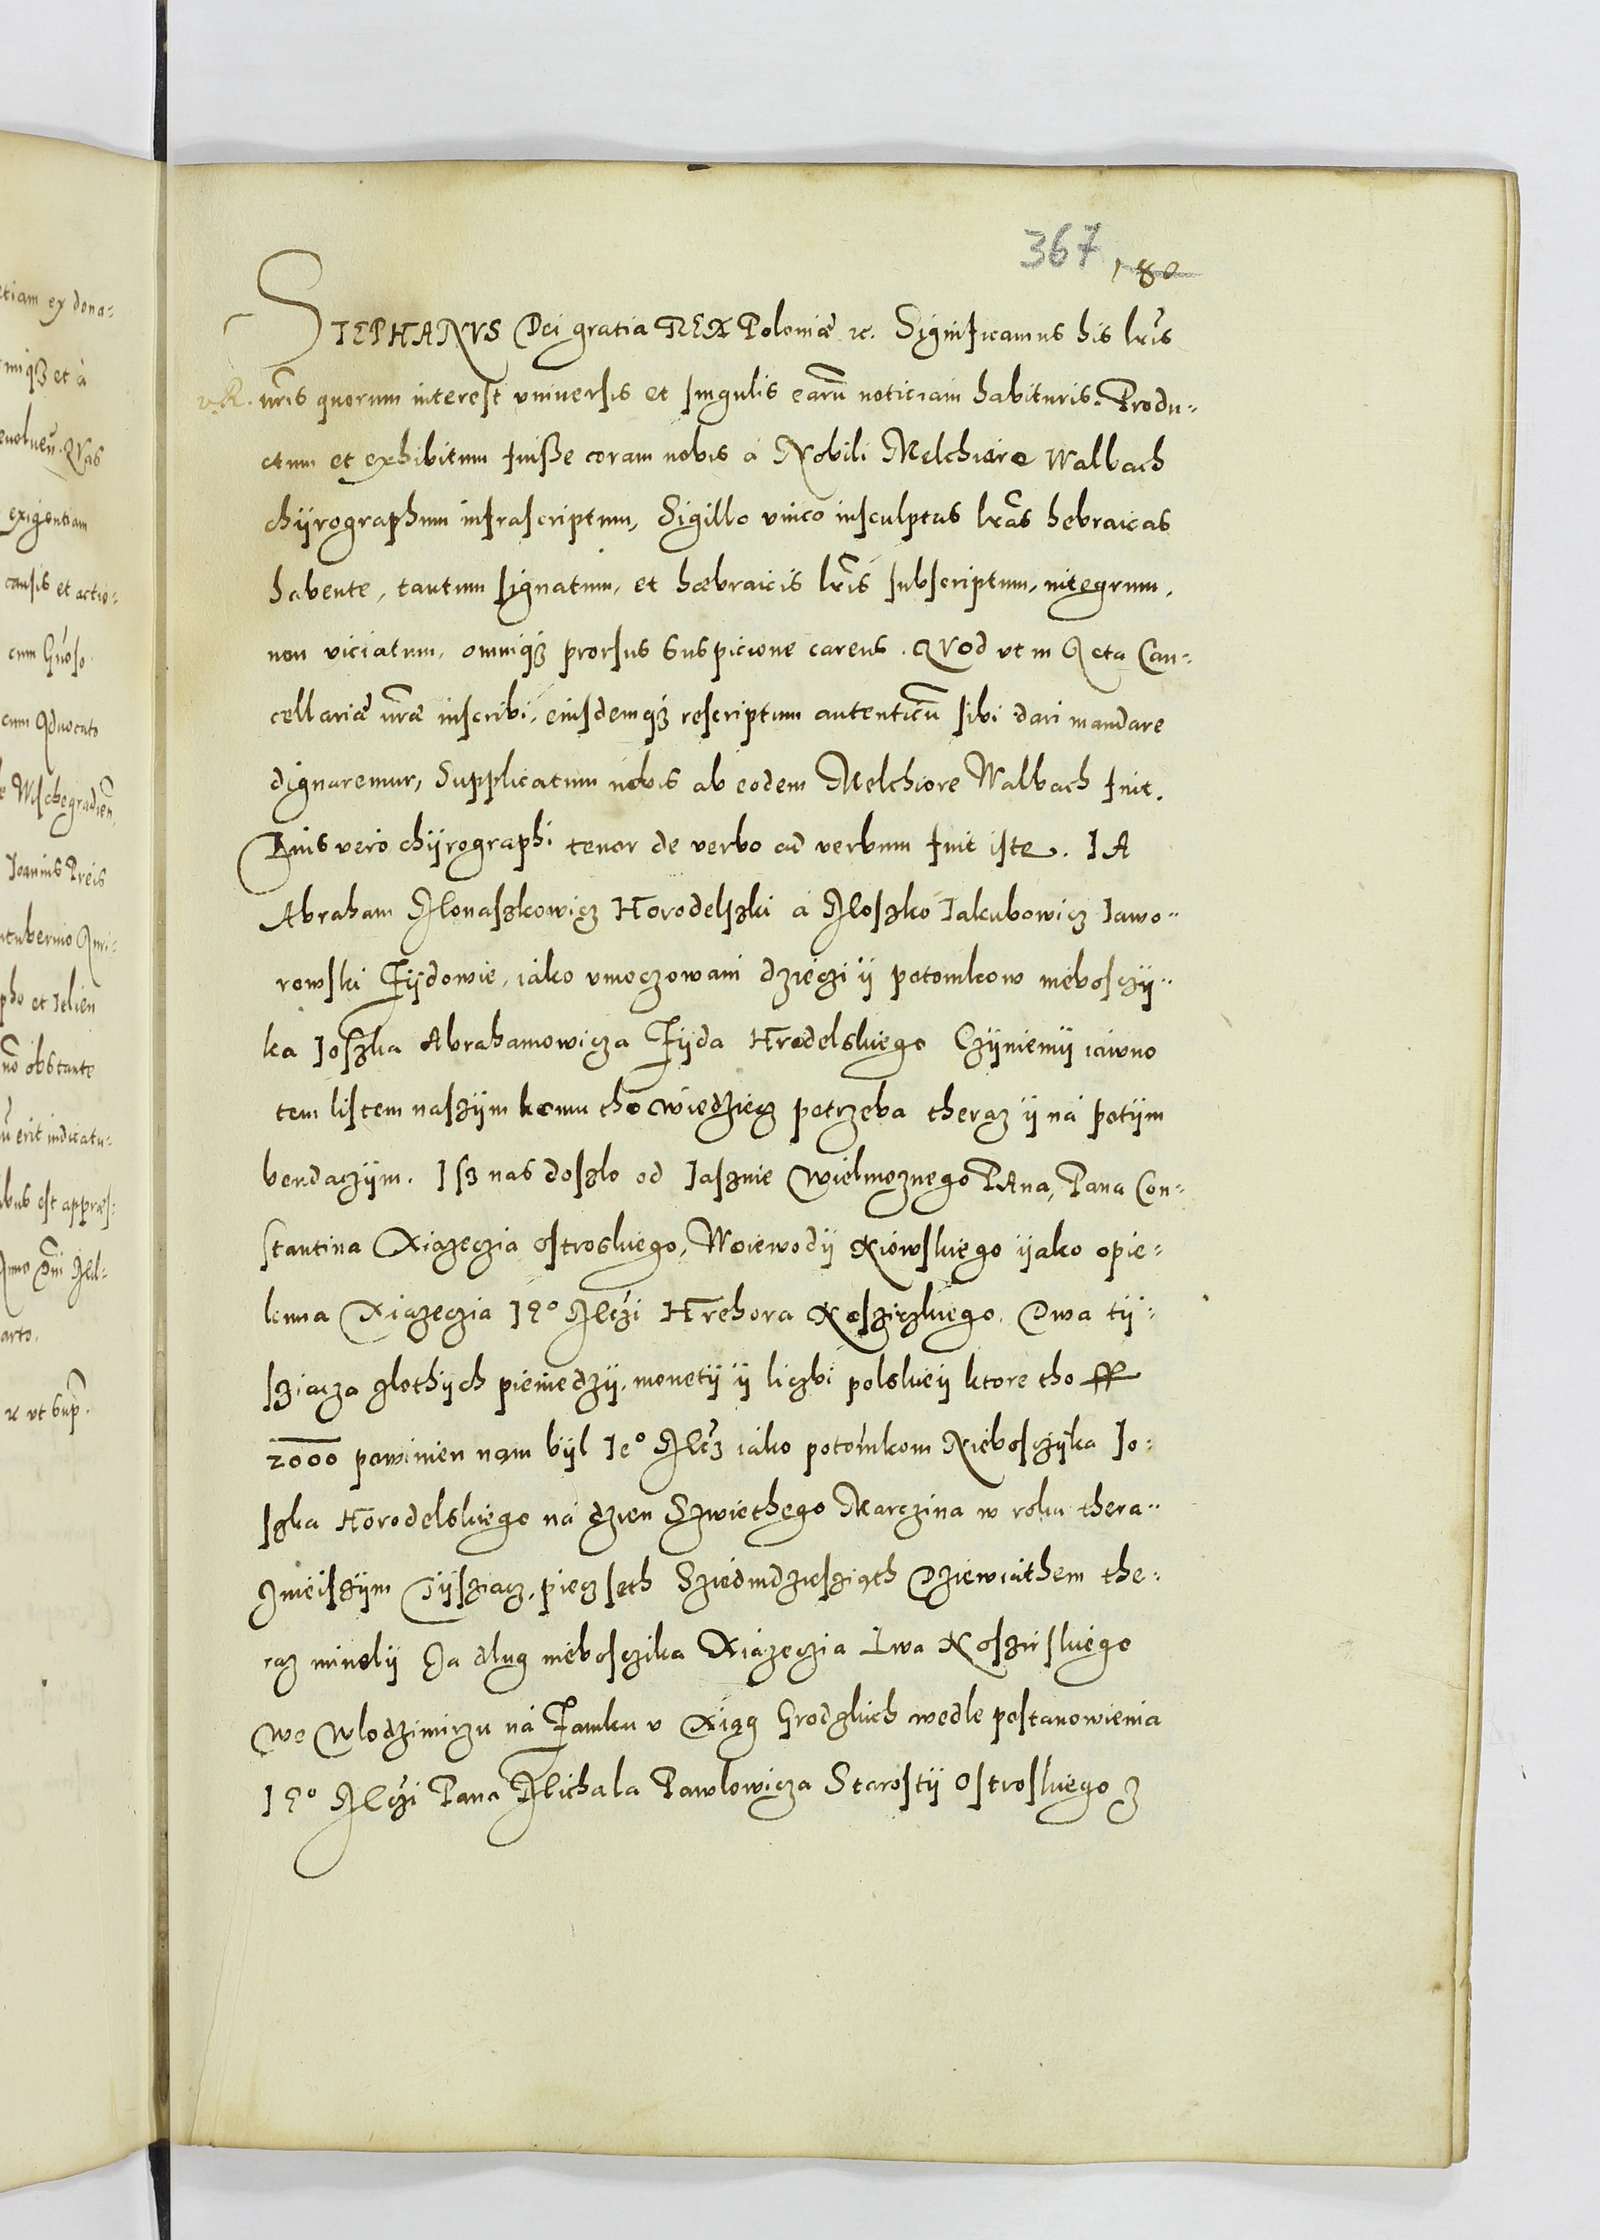 367 180
STEPHANVS Dei gratia REX Poloniæ &c. Significamus his lrīs
nrīs quorum interest vniuersis et singulis earū noticiam habituris. Produ-
ctum et exhibitum fuisse coram nobis á Nobili Melchiore Walbach
chyrographum infrascriptum, Sigillo vnico insculptas lrās hebraicas
habente, tantum signatum, et hæbraicis lrīs subscriptum, integrum,
non viciatum, omniq3 prorsus suspicione carens. QVod vt in Acta Can-
cellariæ nrǣ inscribi, eiusdemq3 rescriptum autenticū sibi dari mandare
dignaremur, Supplicatum nobis ab eodem Melchiore Walbach fuit.
Cuius vero chyrographi tenor de verbo ad verbum fuit iste. IA
Abraham Monaszkowicz Horodelszki á Moszko Iakubowicz Iawo-
rowski Zydowie, iáko vmoczowani dzieczi y potomkow niéboszczy-
ka Ioszka Abrahamowicza Zyda Hrodelskiego Czyniemy iáwno
tem listem naszym komu tho wiedziecz potrzeba theraz y ná potym
bendaczym. Isz nas doszlo od Iasznie Wielmoznego PAna, Pana Con-
stantina Xiązeczia Ostroskiego, Woiewody Kiówskiego yako opie-
kuna Xiązeczia Ie° Mczi Hrehora Koszirzkiego. Dwa ty-
sziącza zlothych pieniedzy, monety y liczbi polskiey ktore tho ff
2000 powinien nam byl Ie° Mcz iáko potomkom Niéboszczyka Io-
szka Horodelskiego ná dzien Szwiethego Marczina w roku thera-
znieiszym Tysziącz, piecz seth Sziedmdziesziąth Dziewiąthem the-
raz minoly Za dlug niéboszczika Xiązeczia Lwa Koszirskiégo
we Wlodzimirzu ná Zamku v Xiąg Grodzkich wedle postanowienia
Ie° Mczi Pana Michala Pawlowicza Starosty Ostroskiego z